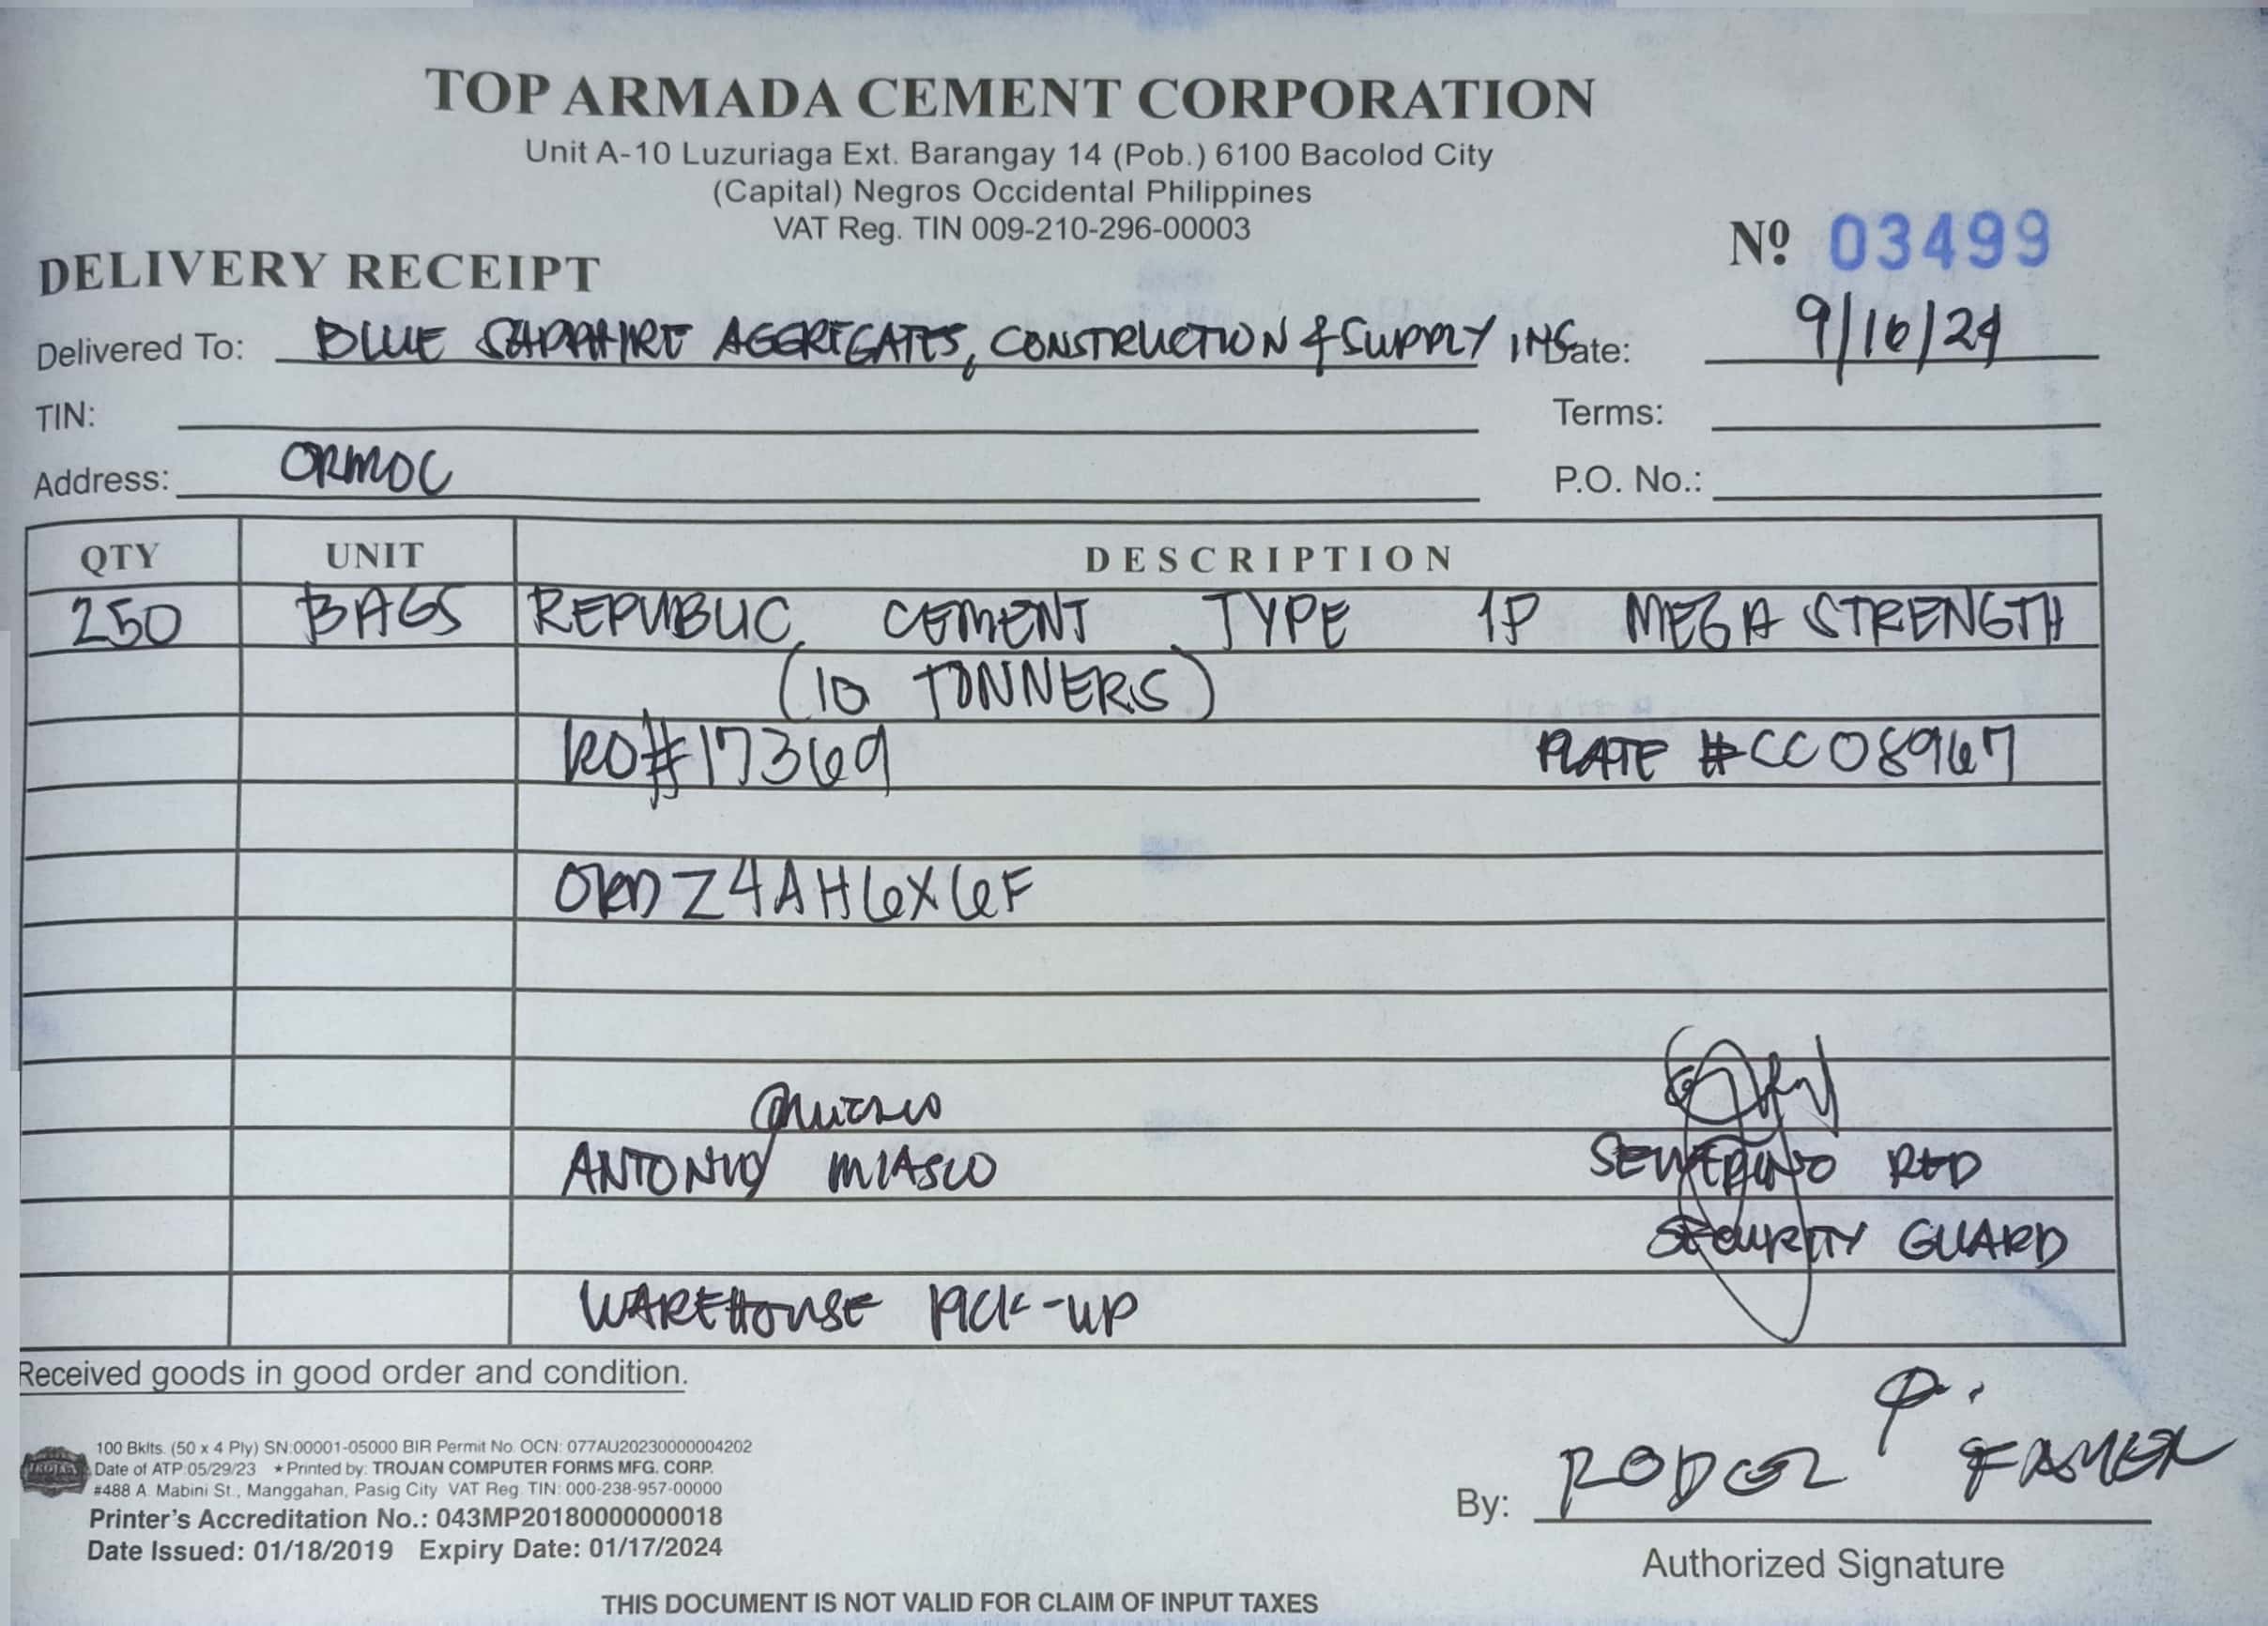 TOP ARMADA CEMENT CORPORATION
Unit A-10 Luzuriaga Ext. Barangay 14 (Pob.) 6100 Bacolod City
(Capital) Negros Occidental Philippines
VAT Reg. TIN 009-210-296-00003
Nº 03499
DELIVERY RECEIPT
Delivered To: BLUE SAPPHIRE AGGREGATES, CONSTRUCTION & SUPPLY INC Date: 9/16/24
TIN: Terms:
Address: ORMOC P.O. No.:
QTY UNIT DESCRIPTION
250 BAGS REPUBLIC CEMENT TYPE 1P MEGA STRENGTH
(10 TONNERS)
RO#17369 PLATE #CCO8967
ORD Z4AH6X6F
ANTONIO MIASCO SEVERINO RED
SECURITY GUARD
WAREHOUSE PICK-UP
Received goods in good order and condition.
100 Bklts. (50 x 4 Ply) SN:00001-05000 BIR Permit No. OCN: 077AU20230000004202
Date of ATP:05/29/23 ★Printed by: TROJAN COMPUTER FORMS MFG. CORP.
#488 A. Mabini St., Manggahan, Pasig City VAT Reg. TIN: 000-238-957-00000
Printer's Accreditation No.: 043MP20180000000018
Date Issued: 01/18/2019 Expiry Date: 01/17/2024
By:
Authorized Signature
THIS DOCUMENT IS NOT VALID FOR CLAIM OF INPUT TAXES